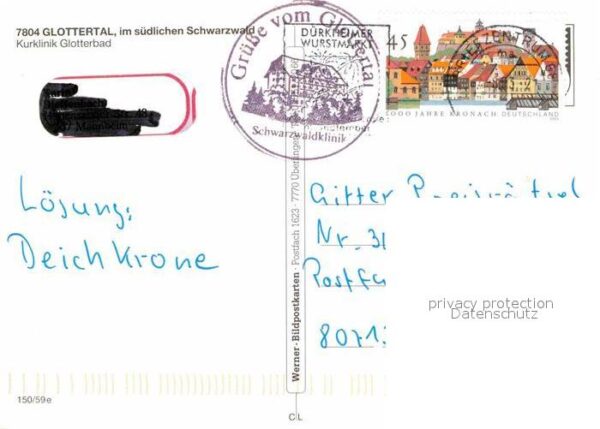 7804 GLOTTERTAL, im südlichen Schwarzwald
Kurklinik Glotterbad
Grüße vom Glottertal
Schwarzwaldklinik
DÜRKHEIMER
WURSTMARKT
45
1000 JAHRE KRONACH DEUTSCHLAND
Mannheim
Lösung:
Deichkrone
Werner-Bildpostkarten · Postfach 1623 · 7770 Überlingen
Gitter
Nr. 31
Postfa
8071
privacy protection
Datenschutz
150/59e
CL